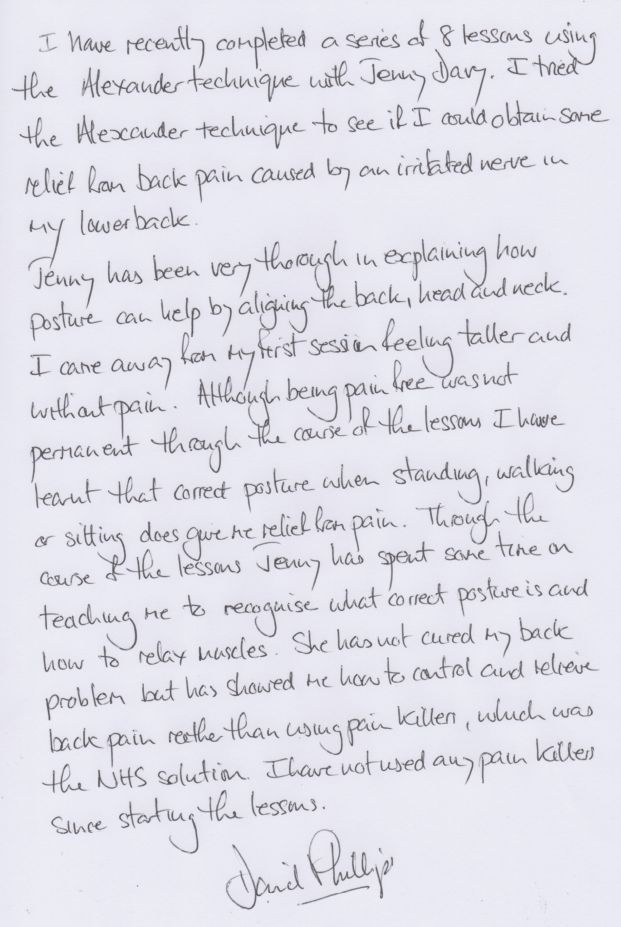 I have recently completed a series of 8 lessons using
the Alexander technique with Jenny Davy. I tried
the Alexander technique to see if I could obtain some
relief from back pain caused by an irritated nerve in
my lower back.
Jenny has been very thorough in explaining how
posture can help by aligning the back, head and neck.
I came away from my first session feeling taller and
without pain. Although being pain free was not
permanent through the course of the lessons I have
learnt that correct posture when standing, walking
or sitting does give me relief from pain. Through the
course of the lessons Jenny has spent some time on
teaching me to recognise what correct posture is and
how to relax muscles. She has not cured my back
problem but has showed me how to control and relieve
back pain rather than using pain killers, which was
the NHS solution. I have not used any pain killers
since starting the lessons.
David Phillips